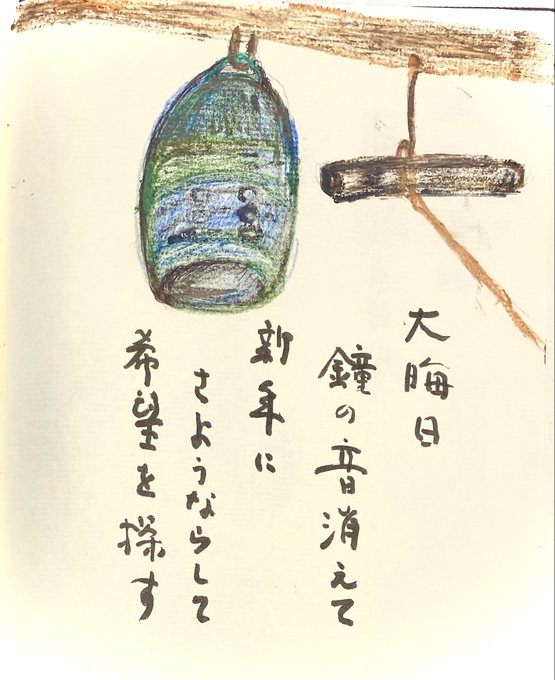 大晦日
鐘の音消えて
新年に
さようならして
希望を探す